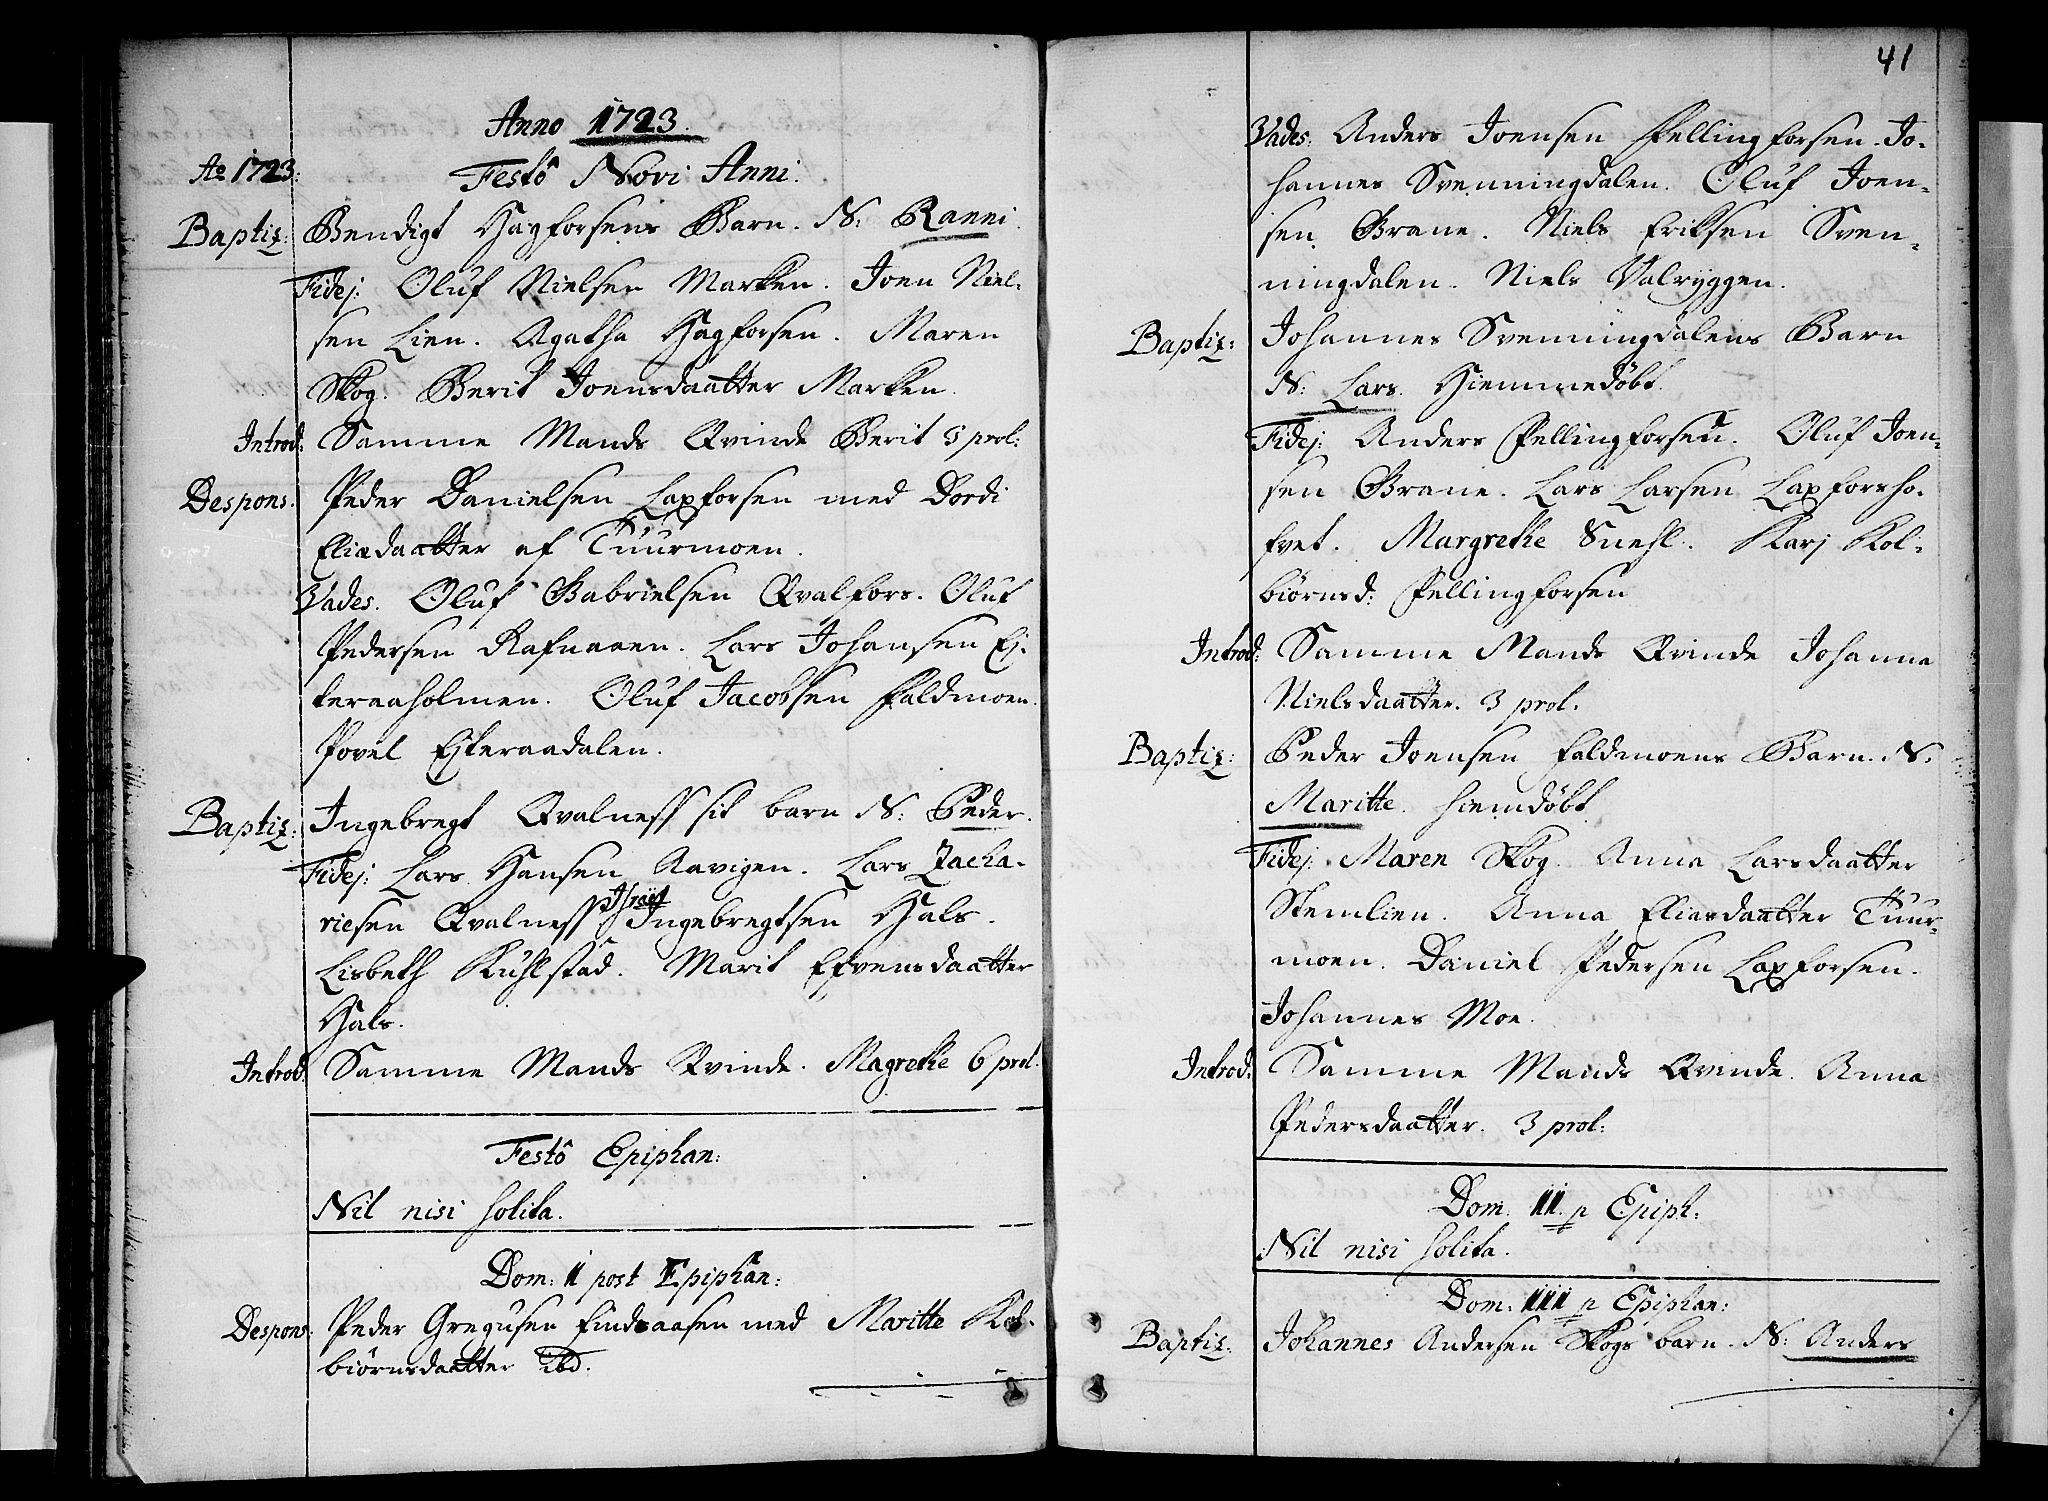 Anno 1723.
Ao 1723: Festô Novi Anni.
Baptiz: Bendigt Hagforsens Barn. N: Ranni.
Fidej: Oluf Nielsen Marken. Joen Niel-
sen Lien. Agatha Hagforsen. Maren
Skog. Berit Joensdaatter Marken.
Introd: Samme Mands Qvinde Berit 3 prol:
Despons. Peder Danielsen Laxforsen med Dordi
Eliædaatter af Tuurmoen.
Vades. Oluf Gabrielsen Qvalfors. Oluf
Pedersen Rafnaaen. Lars Johansen Ej-
teraaholmen. Oluf Jacobsen Faldmoen.
Povel Ejteraadalen.
Baptiz: Ingebregt Qvalness sit barn N: Peder.
Fidej: Lars Hansen Aavigen. Lars Zacha-
riesen Qvalness Ingebregtsen Hals.
Lisbeth Kuhlstad. Marit Efvensdaatter
Hals.
Introd: Samme Mands Qvinde. Magrethe 6 prol.
Festô Epiphan:
Nil nisi solita.
Dom: I post Epiphan:
Despons: Peder Gregusen Findsaasen med Maritte Kol-
biørnsdaatter ibd.
41
Vades: Anders Joensen Fellingforsen. Jo-
hannes Svenningdalen. Oluf Joen-
sen Grane. Niels Eriksen Sven-
ningdalen. Niels Valryggen.
Baptiz: Johannes Svenningdalens Barn
N: Lars. Hiemmedøbt.
Fidej: Anders Fellingforsen. Oluf Joen-
sen Grane. Lars Larsen Laxforsho-
fvet. Margrethe Suehl. Karj Kol-
biørnsd: Fellingforsen
Introd: Samme Mands Qvinde Johanna
Nielsdaatter. 3 prol.
Baptiz: Peder Joensen Faldmoens Barn. N.
Maritte. hiemdøbt.
Fidej: Maren Skog. Anna Larsdaatter
Stemlien. Anna Eliasdaatter Tuur-
moen. Daniel Pedersen Laxforsen.
Johannes Moe.
Introd: Samme Mands Qvinde. Anna
Pedersdaatter. 3 prol:
Dom. II. p Epiph:
Nil nisi solita.
Dom. III p Epiphan:
Baptiz. Johannes Andersen Skogs barn. N: Anders